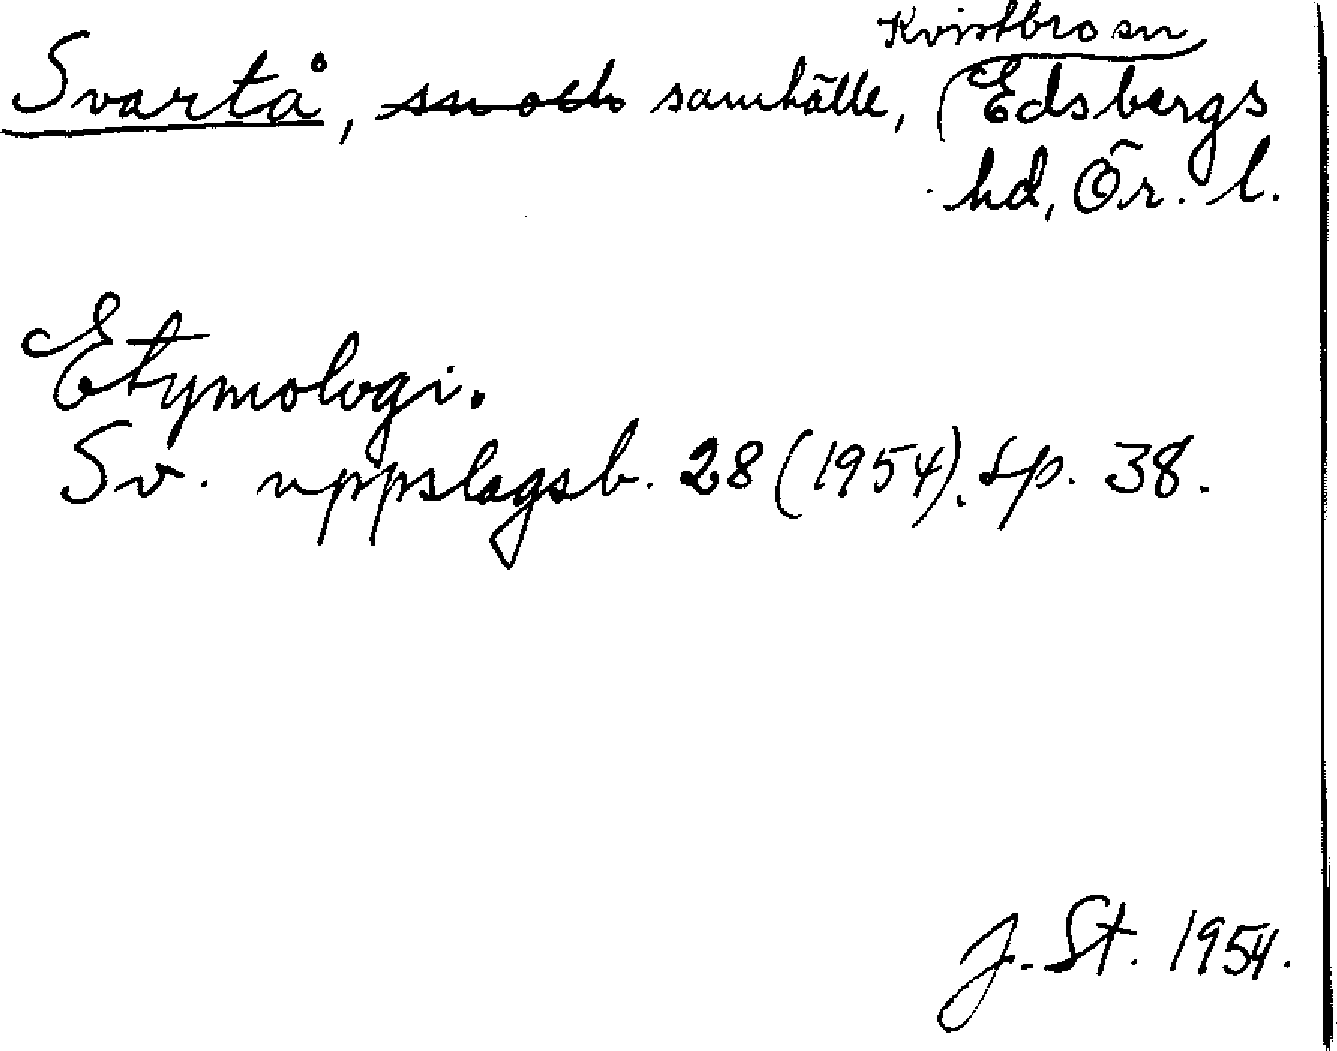 Kvistbro sn
Svartå, sn och samhälle, Edsbergs
hd, Ör. l.
Etymologi.
Sv. uppslagsb. 28 (1954). sp. 38.
J. St. 1954.